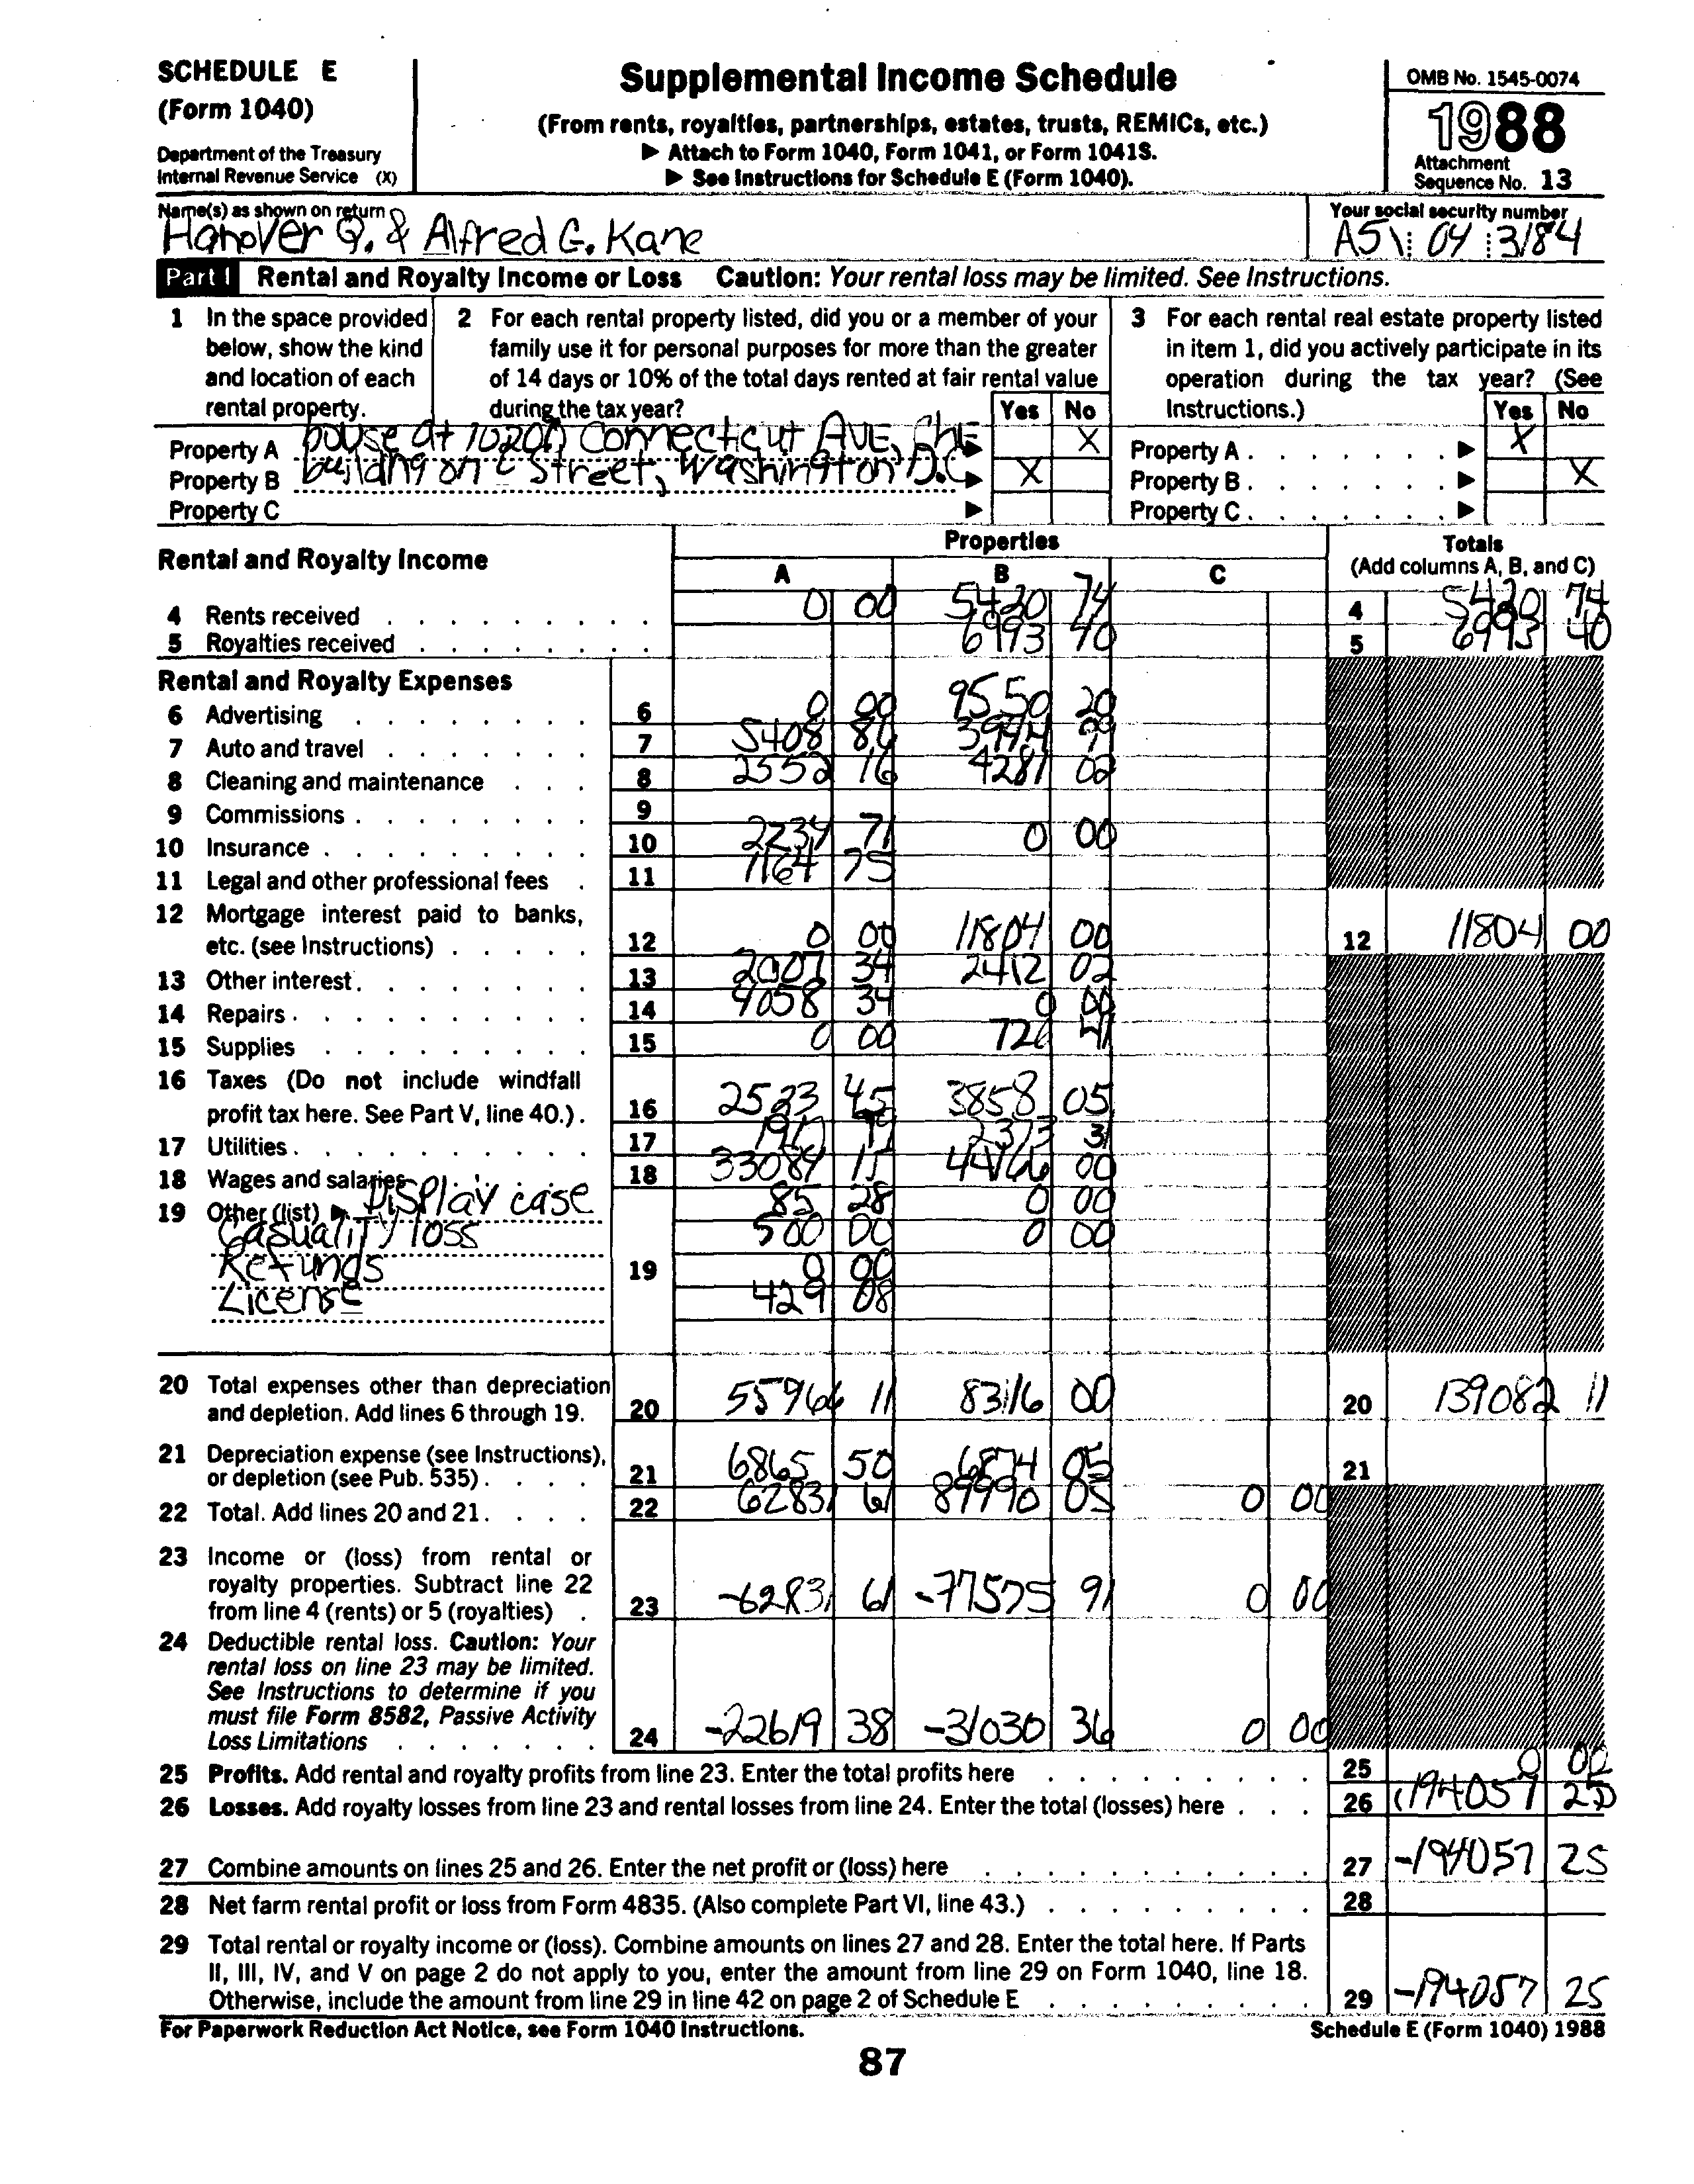 SCHEDULE E
(Form 1040)
Department of the Treasury
Internal Revenue Service (X)
Supplemental Income Schedule
(From rents, royalties, partnerships, estates, trusts, REMICs, etc.)
▶ Attach to Form 1040, Form 1041, or Form 1041S.
▶ See Instructions for Schedule E (Form 1040).
OMB No. 1545-0074
1988
Attachment
Sequence No. 13
Name(s) as shown on return
Hanover Q. & Alfred G. Kane
Your social security number
A51 04 3184
Part I Rental and Royalty Income or Loss Caution: Your rental loss may be limited. See Instructions.
1 In the space provided below, show the kind and location of each rental property.
2 For each rental property listed, did you or a member of your family use it for personal purposes for more than the greater of 14 days or 10% of the total days rented at fair rental value during the tax year? Yes No
3 For each rental real estate property listed in item 1, did you actively participate in its operation during the tax year? (See Instructions.) Yes No
Property A house at 10200 Connecticut AVE, ▶ X Property A . . . . . . . ▶ X
Property B building on C Street, Washington D.C ▶ X Property B . . . . . . . ▶ X
Property C ▶ Property C . . . . . . . ▶
Rental and Royalty Income
Properties
A B C
Totals
(Add columns A, B, and C)
4 Rents received 0 00 5420 74 4 5420 74
5 Royalties received 6993 40 5 6993 40
Rental and Royalty Expenses
6 Advertising 6 0 00 9550 20
7 Auto and travel 7 5408 86 3944 99
8 Cleaning and maintenance 8 2552 16 4281 02
9 Commissions 9
10 Insurance 10 2234 71 0 00
11 Legal and other professional fees 11 1164 75
12 Mortgage interest paid to banks, etc. (see Instructions) 12 0 00 11804 00 12 11804 00
13 Other interest 13 2007 34 2412 02
14 Repairs 14 4058 34 0 00
15 Supplies 15 0 00 726 41
16 Taxes (Do not include windfall profit tax here. See Part V, line 40.) 16 2523 45 3858 05
17 Utilities 17 2373 31
18 Wages and salaries 18 33089 15 44166 00
19 Other (list) ▶ Display case 85 28 0 00
Casuality loss 500 00 0 00
Refunds 19 0 00
License 429 08
20 Total expenses other than depreciation and depletion. Add lines 6 through 19. 20 55966 11 83116 00 20 139082 11
21 Depreciation expense (see Instructions), or depletion (see Pub. 535) 21 6865 50 6874 05 21
22 Total. Add lines 20 and 21. 22 62831 61 89990 05 0 00
23 Income or (loss) from rental or royalty properties. Subtract line 22 from line 4 (rents) or 5 (royalties) 23 -62831 61 -77575 91 0 00
24 Deductible rental loss. Caution: Your rental loss on line 23 may be limited. See Instructions to determine if you must file Form 8582, Passive Activity Loss Limitations 24 -22619 38 -31030 36 0 00
25 Profits. Add rental and royalty profits from line 23. Enter the total profits here 25 0 00
26 Losses. Add royalty losses from line 23 and rental losses from line 24. Enter the total (losses) here 26 (194057 25)
27 Combine amounts on lines 25 and 26. Enter the net profit or (loss) here 27 -194057 25
28 Net farm rental profit or loss from Form 4835. (Also complete Part VI, line 43.) 28
29 Total rental or royalty income or (loss). Combine amounts on lines 27 and 28. Enter the total here. If Parts
II, III, IV, and V on page 2 do not apply to you, enter the amount from line 29 on Form 1040, line 18.
Otherwise, include the amount from line 29 in line 42 on page 2 of Schedule E 29 -194057 25
For Paperwork Reduction Act Notice, see Form 1040 Instructions.
Schedule E (Form 1040) 1988
87